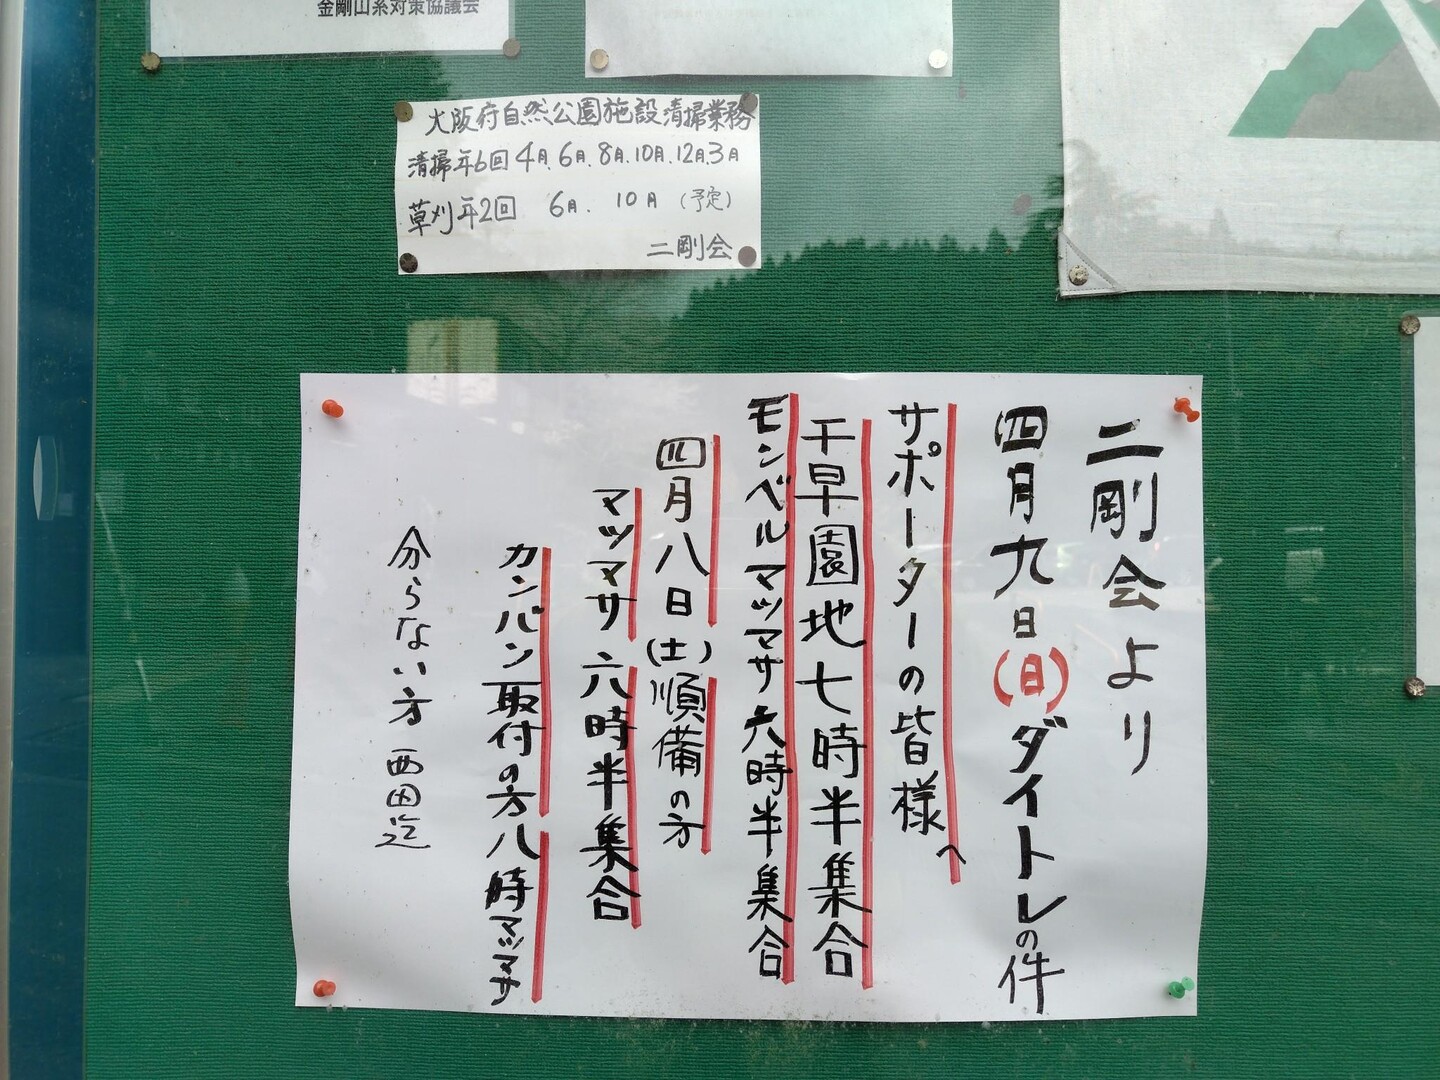 金剛山系対策協議会
大阪府自然公園施設清掃業務
清掃年6回 4月.6月.8月.10月.12月.3月
草刈年2回 6月. 10月 (予定)
二剛会
二剛会より
四月九日(日)ダイトレの件
サポーターの皆様へ
千早園地七時半集合
モンベルマツマサ六時半集合
四月八日(土)順備の方
マツマサ六時半集合
カンバン取付の方八時マツマサ
分らない方 西田迄